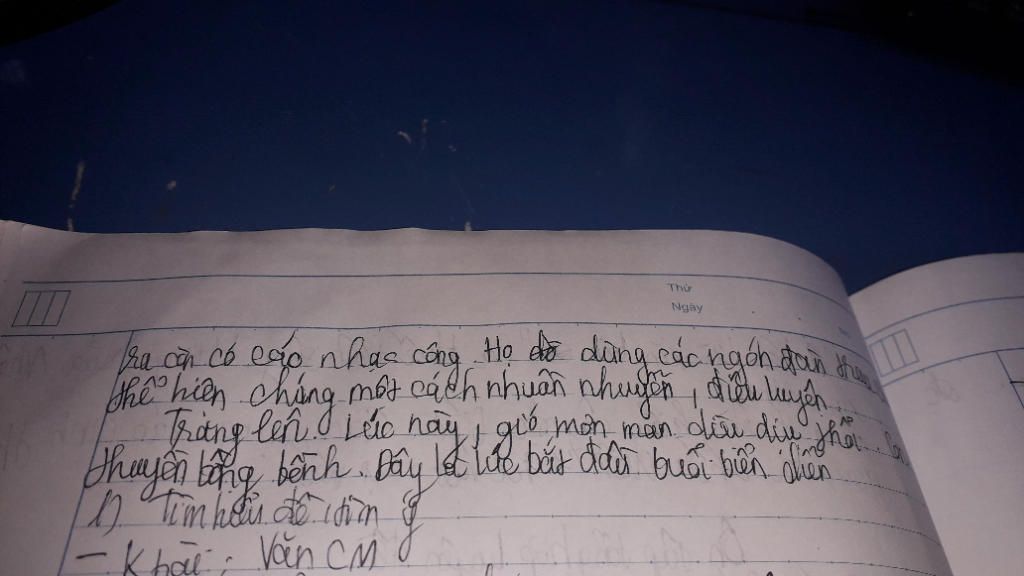 Thứ
Ngày
ra còn có các nhạc công. Họ dùng các ngón đàn
thể hiện chúng một cách nhuần nhuyễn, điêu luyện.
Trăng lên. Lúc này, gió mơn man dìu dịu thổi.
thuyền bồng bềnh. Đây là lúc bắt đầu buổi biển diễn
1) Tìm hiểu đề, tìm ý
- Khái: Văn CM